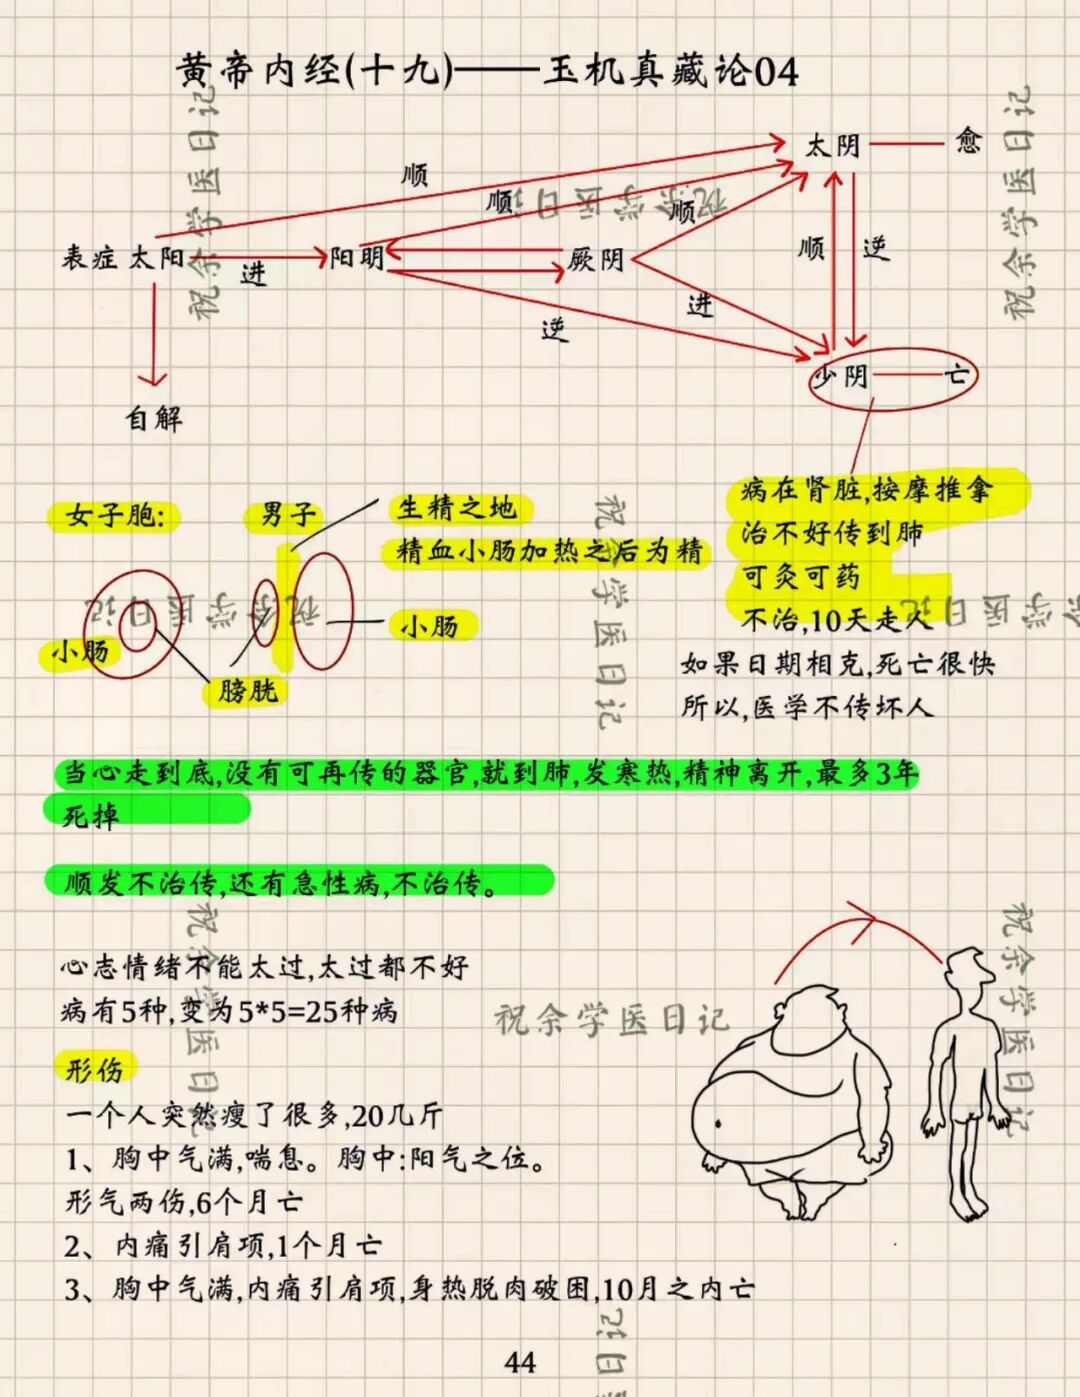 黄帝内经(十九)——玉机真藏论04
太阴——愈
顺
顺
顺
表症 太阳
进
阳明
厥阴
顺
逆
进
逆
少阴——亡
自解
女子胞:
男子
生精之地
精血小肠加热之后为精
小肠
小肠
膀胱
病在肾脏,按摩推拿
治不好传到肺
可灸可药
不治,10天走人
如果日期相克,死亡很快
所以,医学不传坏人
当心走到底,没有可再传的器官,就到肺,发寒热,精神离开,最多3年
死掉
顺发不治传,还有急性病,不治传。
心志情绪不能太过,太过都不好
病有5种,变为5*5=25种病
形伤
一个人突然瘦了很多,20几斤
1、胸中气满,喘息。胸中:阳气之位。
形气两伤,6个月亡
2、内痛引肩项,1个月亡
3、胸中气满,内痛引肩项,身热脱肉破困,10月之内亡
44
祝余学医日记
祝余学医日记
祝余学医日记
祝余学医日记
祝余学医日记
祝余学医日记
祝余学医日记
祝余学医日记
祝余学医日记
余学医日记
日记